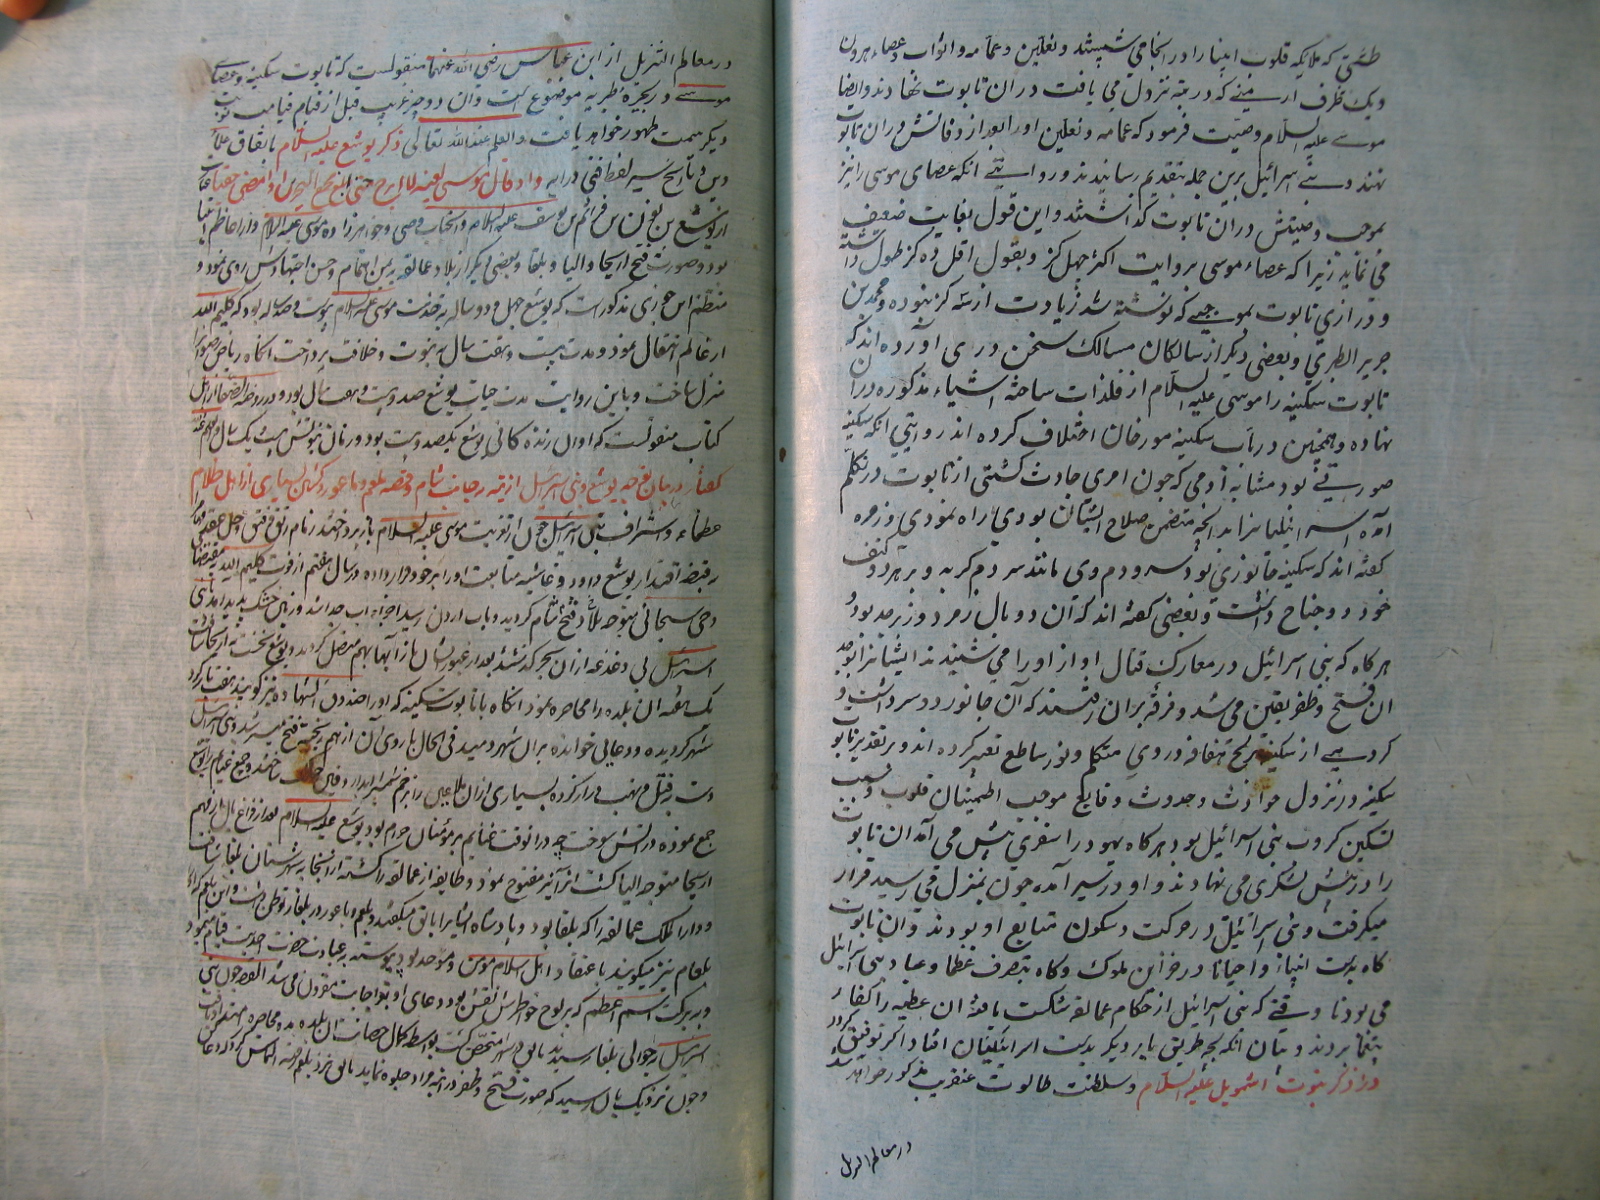 طشتی که ملایکه قلوب انبیا را در انجا می شستند و نعلین و عمامه و اثواب و عصاء هرون
و یک ظرف از منی که در تیه نزول می یافت در ان تابوت نهادند و ایضا
موسے علیه السلام وصیت فرمود که عمامه و نعلین او را بعد از وفاتش در ان تابوت
نهند و بنے اسرائیل برین جمله بتقدیم رسانیدند و روایتے انکه عصای موسی را نیز
بموجب وصیتش دران تابوت گذاشتند و این قول بغایت ضعیف
می نماید زیرا که عصاء موسی بروایت اکثر چهل گز و بقول اقل ده گز طول داشته
و درازی تابوت بموجبے که نوشته شد زیادت از سه گز نبوده و محمد بن
جریر الطبری و بعضی دیگر از سالکان مسالک سخن وری آورده اند که
تابوت سکینه را موسی علیه السلام از فلذات ساخته اشیاء مذکوره در ان
نهاده و همچنین در باب سکینه مورخان اختلاف کرده اند روایتی انکه سکینه
صورتے بود مشابه آدمی که چون امری حادث گشتی از تابوت در تکلم
آمده اسرائیلیانرا بدانچه متضمن صلاح ایشان بودی راه نمودی و زمره
گفته اند که سکینه جانوری بود سر و دم وی مانند سر و دم گربه و بر هر دو کتف
خود دو جناح داشت و بعضی گفته اند که آن دو بال زمرد و زبرجد بود و
هرگاه که بنی اسرائیل در معارک قتال اواز او را می شنیدند ایشانرا بوجد
ان فتح و ظفر یقین می شد و فرقه بران رفتند که آن جانور دو سر داشت و
کروهے از سکینه بریح هفافه و روی متکلم و نور ساطع تعبیر کرده اند و بر تقدیر تابوت
سکینه در نزول حوادث و حدوث وقایع موجب اطمینان قلوب و سبب
تسکین کروب بنی اسرائیل بود هرگاه یهود را سفری پیش می آمد ان تابوت
را در پیش لشکری می نهادند و او در سیر آمده چون بمنزل می رسید قرار
میگرفت و بنی اسرائیل در حرکت و سکون متابع او بودند و ان تابوت
گاه بدست انبیاء و احیانا در خزاین ملوک و گاه بتصرف عظما و عباد بنی اسرائیل
می بود تا وقتے که بنی اسرائیل از حکام عمالقه شکست یافته ان عطیه را کفار
بیغما بردند و بیان انکه بچه طریق بار دیگر بدست اسرائیلیان افتاد اگر توفیق
در ذکر نبوت اشمویل علیه السلام و سلطنت طالوت عنقریب مذکور خواهد شد
در معالم التنزیل
در معالم التنزیل از ابن عباس رضی الله عنهما منقولست که تابوت سکینه و عصای
موسے در بحیره طبریه موضوع است و ان دو چیز غریب قبل از قیام قیامت نوبت
دیگر سمت ظهور خواهد یافت و العلم عند الله تعالی ذکر یوشع علیه السلام باتفاق علماء
دین و تاریخ سیر لفظ فتی در ایه و اذ قال موسی لفتیه لا ابرح حتی ابلغ مجمع البحرین او امضی حقبا عبارت
از یوشع بن نون بن فرائیم بن یوسف علیه السلام و انجناب وصی و خواهر زاده موسی علیه السلام و از اعاظم انبیا
بود و صورت فتح اریحا و ایلیا و بلقا و بعضی دیگر از بلاد عمالقه بیمن اهتمام و حسن اجتهادش روی نمود و
منتظم ابن جوزی مذکورست که یوشع چهل و دو ساله بخدمت موسی علیه السلام پیوست و صد ساله بود که کلیم الله
از عالم انتقال نمود و مدت بیست و هفت سال به نبوت و خلافت پرداخت انگاه ریاض رضوانرا
منزل ساخت و باین روایت مدت حیات یوشع صد و بیست و هفت سال بود و در روضة الصفا از اهل
کتاب منقولست که اوان زندگانی یوشع یکصد و بیست بود و زمان نبوتش بیست و یک سال
گفتار در بیان توجه یوشع و بنی اسرائیل از تیه بجانب شام و قصه بلعم و باعورد کشتن بسیاری از اهل ظلام
عظماء و اشراف بنی اسرائیل چون از تعزیت موسی علیه السلام باز پرداختند زمام رتق و فتق حل و عقد
بقبضه اقتدار یوشع داده و غاشیه متابعت او را بر خود قرار داده در سال هفتم از فوت کلیم الله بمقتضای
وحی سبحانی متوجه بلاد فتح شام گردید و باب اردن رسید اجزاء اب جدا شد و زمین خشک پدید امد بنی
اسرائیل بی دغدغه از ان بحر گذشتند بعد از عبور ایشان باز آبها بهم متصل گردید و یوشع نخست به اریحا شتافت
یک هفته ان بلده را محاصره نمود انگاه با تابوت سکینه که او را صندوق الشهاده نیز گویند هفت بار گرد
شهر گردیده و دعایی خوانده بران شهر دمید فی الحال باروی آن از هم بریخت فتح میسر شد و بنی اسرائیل
دست بقتل و نهب دراز کرده بسیاری از ان ملاعین را بزخم شمشیر ابدار ساختند و جمیع غنایم را یوشع
جمع نموده در اتش سوخت چه در انوقت غنایم بر مؤمنان حرام بود یوشع علیه السلام بعد از فراغ بال از مهم
اریحا متوجه ایلیا گشت انرا نیز مفتوح نمود و طایفه از عمالقه را کشته از انجا بشهرستان بلقا شتافت
و دار الملک عمالقه را که بلقا بود و پادشاه ایشانرا بالق میگفتند و بلعم باعور در بلقا توطن داشت و این بلعم که او را
بلعام نیز میگویند باعتقاد اهل اسلام مومن و موحد بود پیوسته به عبادت حضرت احدیت قیام می نمود
و به برکت اسم اعظم که بر لوح خواطرش انتقش بود دعای او بتواجابت مقرون می شد القصه چون بنی
اسرائیل بحوالی بلقا رسیدند بالق در شهر متحصن گشت بواسطه کمال حصانت ان بلده مدت محاصره
و چون نزدیک بان رسید که صورت فتح و ظفر در آینه مراد جلوه نماید بالق نزد بلعم رفته التماس کرد که دعای